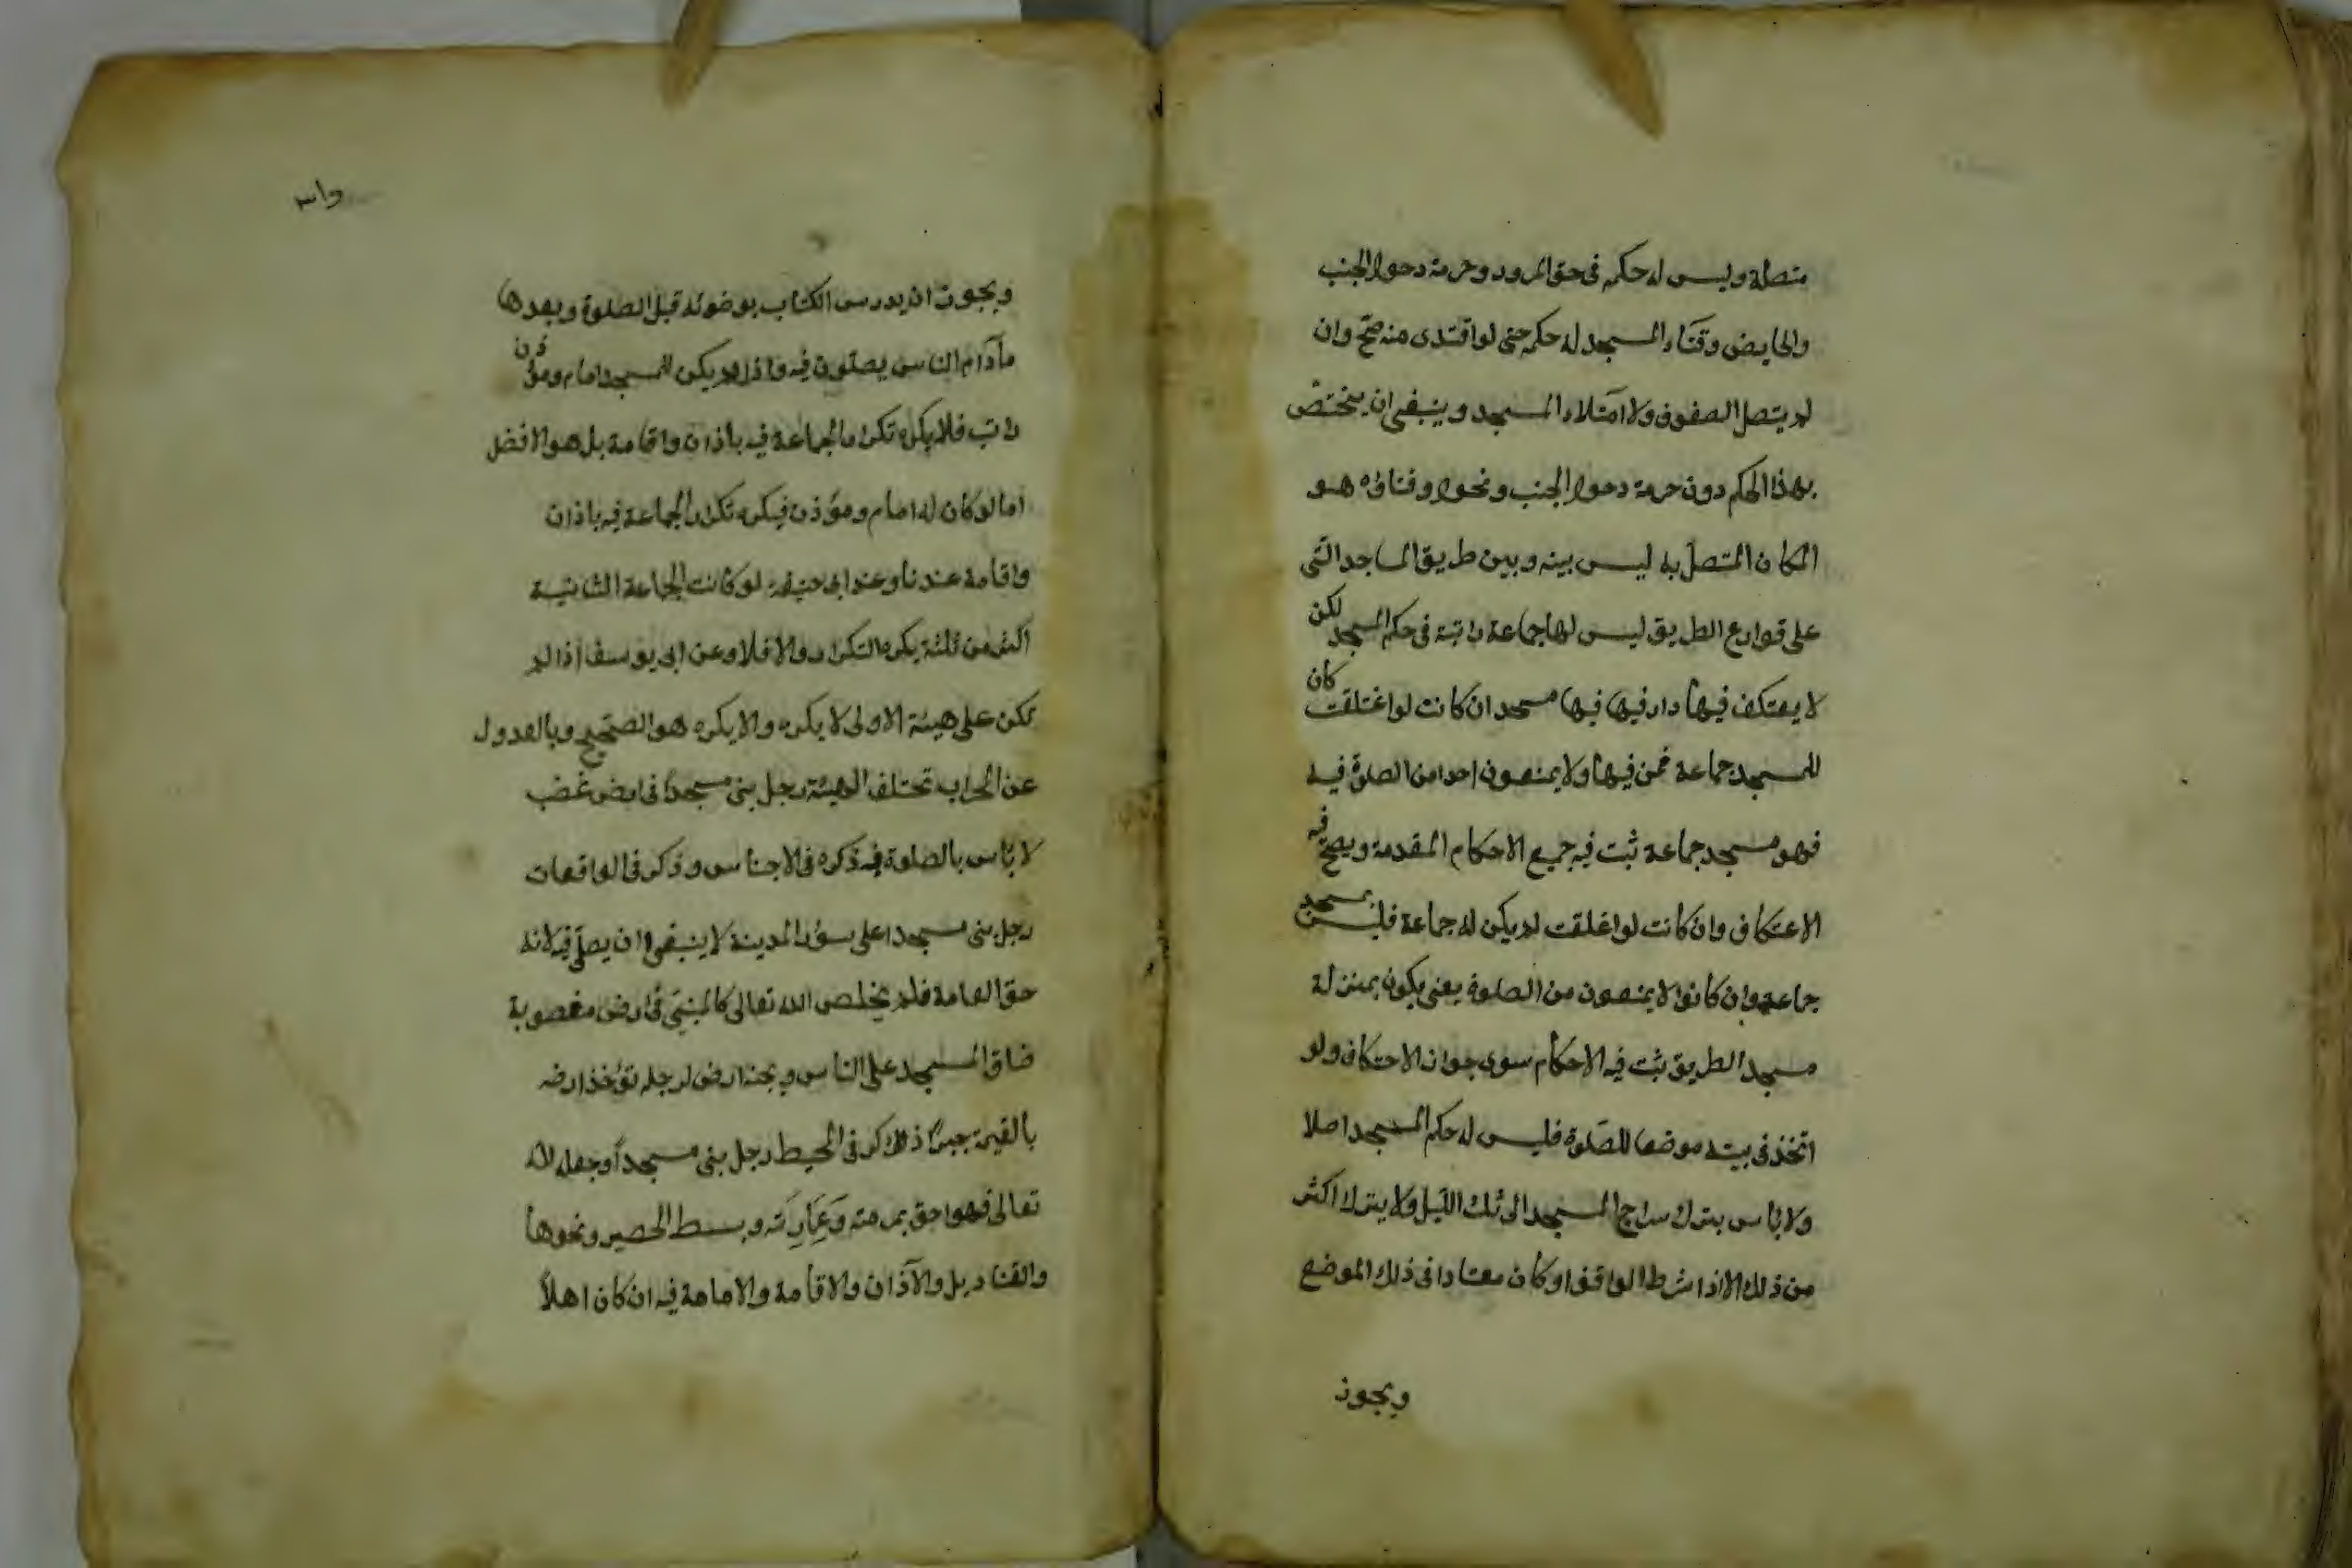 متصلة وليس له حكمه فى حق المرور وحرمة دخول الجنب
والحايض وفناء المسجد له حكمه حتى لو اقتدى منه صحّ وان
لم يتصل الصفوف ولا امتلاء المسجد وينبغى ان يختصّ
بهذا الحكم دون حرمة دخول الجنب ونحوه وفناؤه هو
المكان المتصل به ليس بينه وبين طريق المساجد التى
على قوارع الطريق ليس لها جماعة راتبة فى حكم المسجد لكن
لا يعتكف فيها دار فيها فيها مسجد ان كانت لو اغتلقت كان
للمسجد جماعة ممن فيها ولا يمنعون احدا من الصلوة فيه
فهو مسجد جماعة ثبت فيه جميع الاحكام المقدمة ويصح فيه
الاعتكاف وان كانت لو اغلقت لم يكن له جماعة فليس بمسجد
جماعة وان كانوا لا يمنعون من الصلوة يعنى يكون بمنزلة
مسجد الطريق ثبت فيه الاحكام سوى جواز الاعتكاف ولو
اتخذ فى بيته موضعا للصلوة فليس له حكم المسجد اصلا
ولا بأس بترك سراج المسجد الى ثلث الليل ولا يترك اكثر
من ذلك الا اذا شرط الواقف او كان معتادا فى ذلك الموضع
ويجوز
ويجوز ان يدرس الكتاب بوضوئه قبل الصلوة وبعدها
مادام الناس يصلون فيه واذا لم يكن للمسجد امام ومؤذن
راتب فلا يكره تكرار الجماعة فيه باذان واقامة بل هو الافضل
اما لو كان له امام ومؤذن فيكره تكرار الجماعة فيه باذان
واقامة عندنا وعند ابى حنيفة لو كانت الجماعة الثانية
اكثر من ثلثة يكره التكرار والا فلا وعن ابى يوسف اذا لم
تكن على هيئة الاولى لا يكره والا يكره هو الصحيح وبالعدول
عن المحراب تختلف الهيئة رجل بنى مسجدا فى ارض غصب
لا بأس بالصلوة فيه ذكره فى الاجناس وذكر فى الواقعات
رجل بنى مسجدا على سور المدينة لا ينبغى ان يصلّى فيه لانه
حق العامة فلم يخلص لله تعالى كالمبنى فى ارض مغصوبة
ضاق المسجد على الناس وبجنبه ارض لرجل تؤخذ ارضه
بالقيمة جبرا ذكر فى المحيط رجل بنى مسجدا وجعله لله
تعالى فهو احق بمرمته وعمارته وبسط الحصير ونحوها
والقناديل والآذان والاقامة والامامة فيه ان كان اهلاً